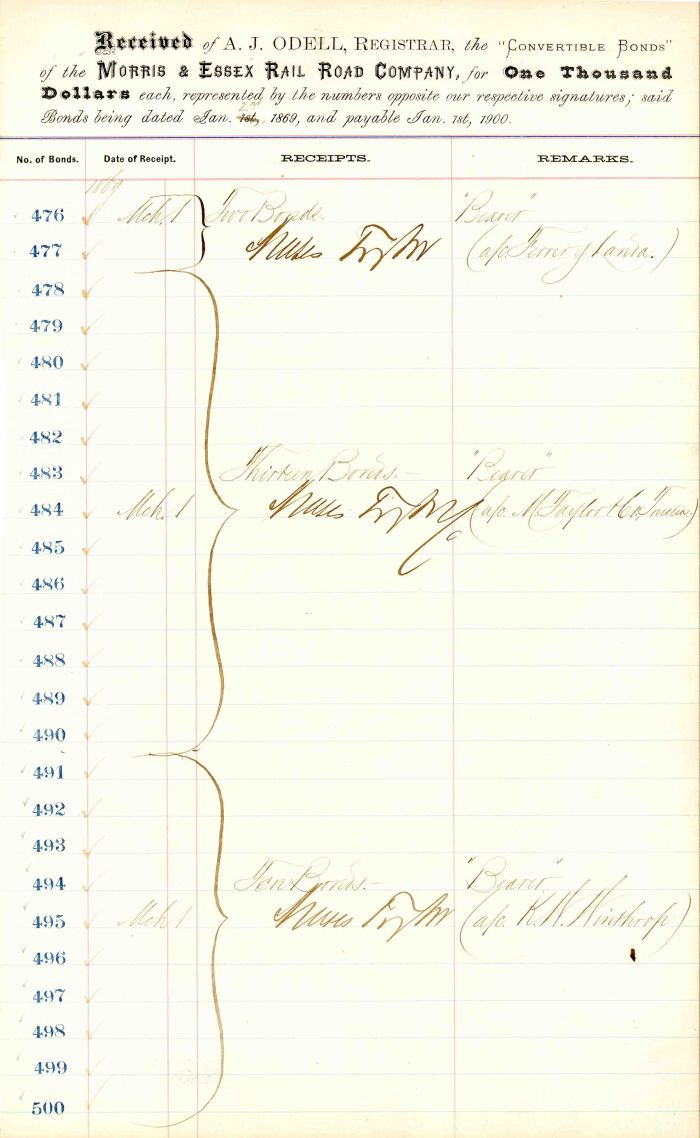 Received of A. J. ODELL, REGISTRAR, the "CONVERTIBLE BONDS"
of the MORRIS & ESSEX RAIL ROAD COMPANY, for One Thousand
Dollars each, represented by the numbers opposite our respective signatures; said
2nd
Bonds being dated Jan. 1st, 1869, and payable Jan. 1st, 1900.
No. of Bonds. Date of Receipt. RECEIPTS. REMARKS.
1869
476 Mch. 1 Two Bonds. "Bearer"
477 (a/c. Ferrer y Landa.)
478
479
480
481
482
483 Thirteen Bonds.— "Bearer"
484 Mch. 1 (a/c. M. Taylor & Co,
485
486
487
488
489
490
491
492
493
494 Ten Bonds.— "Bearer"
495 Mch 1 (a/c. K. W. Winthrop)
496
497
498
499
500